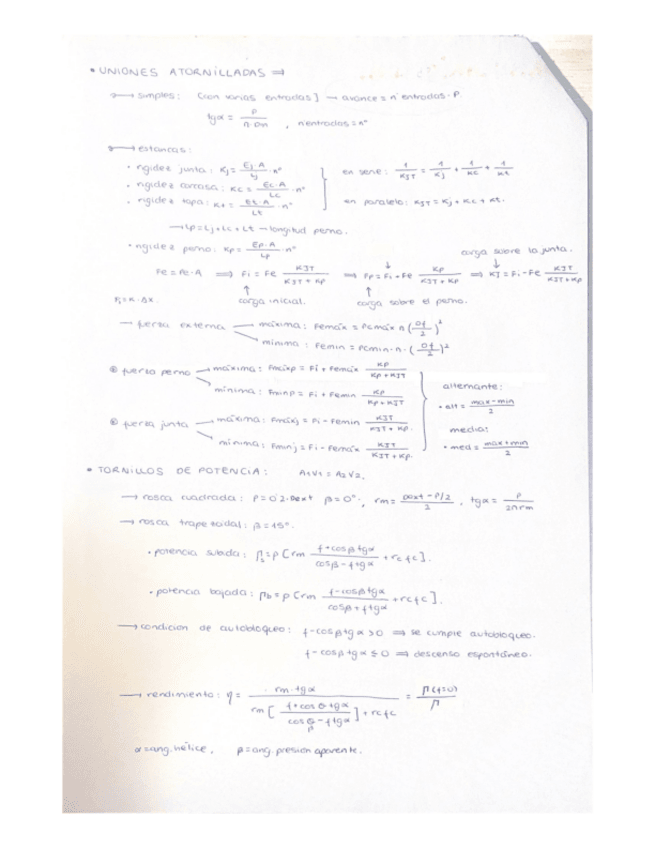 • UNIONES ATORNILLADAS ⇒
→ simples: (con varias entradas) → avance = nº entradas · P
tgα = P / π·Dm , nº entradas = nº
→ estancas:
• rigidez junta: Kj = Ej·A / Lj · nº
• rigidez carcasa: Kc = Ec·A / Lc · nº
• rigidez tapa: Kt = Et·A / Lt · nº
en serie: 1/KJT = 1/Kj + 1/Kc + 1/Kt
en paralelo: KJT = Kj + Kc + Kt.
→ Lp = Lj + Lc + Lt → longitud perno.
• rigidez perno: Kp = Ep·A / Lp · nº
carga sobre la junta.
Fe = Pe·A ⇒ Fi = Fe KJT / KJT + Kp ⇒ Fp = Fi + Fe Kp / KJT + Kp ⇒ KJ = Fi - Fe KJT / KJT + Kp
Fi = K·Δx. carga inicial. carga sobre el perno.
→ fuerza externa → máxima: Femáx = Pcmáx π (Df/2)²
→ mínima: Femin = Pcmin·π·(Df/2)²
⊛ fuerza perno → máxima: Fmáxp = Fi + Femáx Kp / Kp + KJT
→ mínima: Fminp = Fi + Femin Kp / Kp + KJT
alternante:
• alt = max - min / 2
⊛ fuerza junta → máxima: Fmáxj = Fi - Femin KJT / KJT + Kp.
→ mínima: Fminj = Fi - Femáx KJT / KJT + Kp.
media:
• med = max + min / 2
• TORNILLOS DE POTENCIA: A1V1 = A2V2.
→ rosca cuadrada: P = 0'2·Dext β = 0º , rm = Dext - P/2 / 2 , tgα = P / 2πrm
→ rosca trapezoidal: β = 15º.
• potencia subida: Ps = P [rm f + cosβ tgα / cosβ - f tgα + rc fc].
• potencia bajada: Pb = P [rm f - cosβ tgα / cosβ + f tgα + rc fc].
→ condicion de autobloqueo: f - cosβ tgα > 0 ⇒ se cumple autobloqueo.
f - cosβ tgα ≤ 0 ⇒ descenso espontáneo.
→ rendimiento: η = rm·tgα / rm [f + cosθ tgα / cosθ - f tgα] + rc fc = P(f=0) / P
β
α = ang. hélice, β = ang. presion aparente.